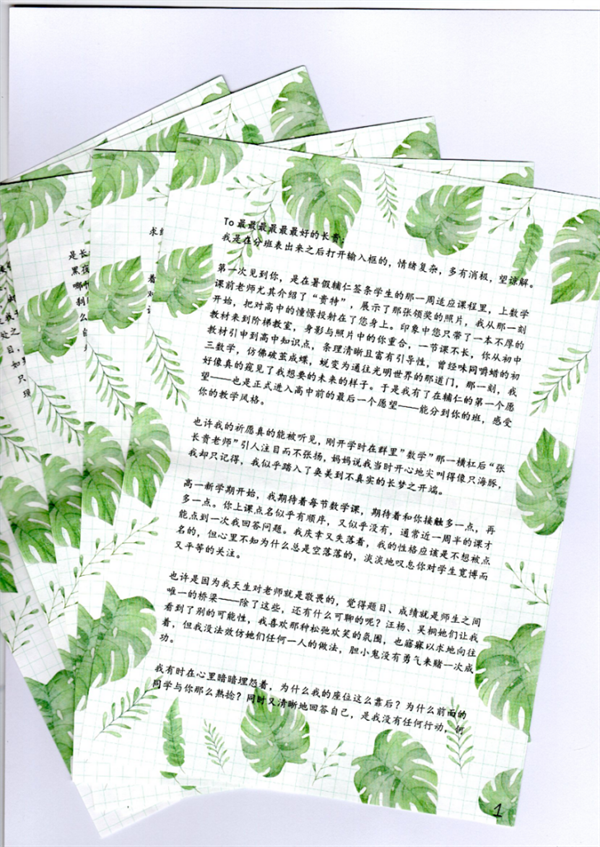 To 最最最最最最好的长贵：
我是在分班表出来之后打开输入框的，情绪复杂，多有消极，望谅解。
第一次见到你，是在暑假辅仁签条学生的那一周适应课程里，上数学
课前老师尤其介绍了“贵特”，展示了那张领奖的照片，我从那一刻
开始，把对高中的憧憬投射在了您身上。印象中您只带了一本不厚的
教材来到阶梯教室，身影与照片中的你重合，一节课不长，你从初中
教材引申到高中知识点，条理清晰且富有引导性，曾经味同嚼蜡的初
三数学，仿佛破茧成蝶，蜕变为通往光明世界的那道门，那一刻，我
好像真的窥见了我想要的未来的样子。于是我有了在辅仁的第一个愿
望——也是正式进入高中前的最后一个愿望——能分到你的班，感受
你的教学风格。
也许我的祈愿真的能被听见，刚开学时在群里“数学”那一横杠后“张
长贵老师”引人注目而不张扬，妈妈说我当时开心地尖叫得像只海豚，
我却只记得，我似乎踏入了奂美到不真实的长梦之开端。
高一新学期开始，我期待着每节数学课，期待着和你接触多一点，再
多一点。你上课点名似乎有顺序，又似乎没有，通常近一周半的课才
能点到一次我回答问题。我庆幸又失落着，我的性格应该是不想被点
名的，但心里不知为什么总是空落落的，淡淡地叹息你对学生宽博而
又平等的关注。
也许是因为我天生对老师就是敬畏的，觉得题目、成绩就是师生之间
唯一的桥梁——除了这些，还有什么可聊的呢？汪杨、吴桐她们让我
看到了别的可能性，我喜欢那种松弛欢笑的氛围，也寤寐以求地向往
着，但我没法效仿她们任何一人的做法，胆小鬼没有勇气来赌一次成
功。
我有时在心里暗暗埋怨着，为什么我的座位这么靠后？为什么前面的
同学与你那么熟捻？同时又清晰地回答自己，是我没有任何行动，
1